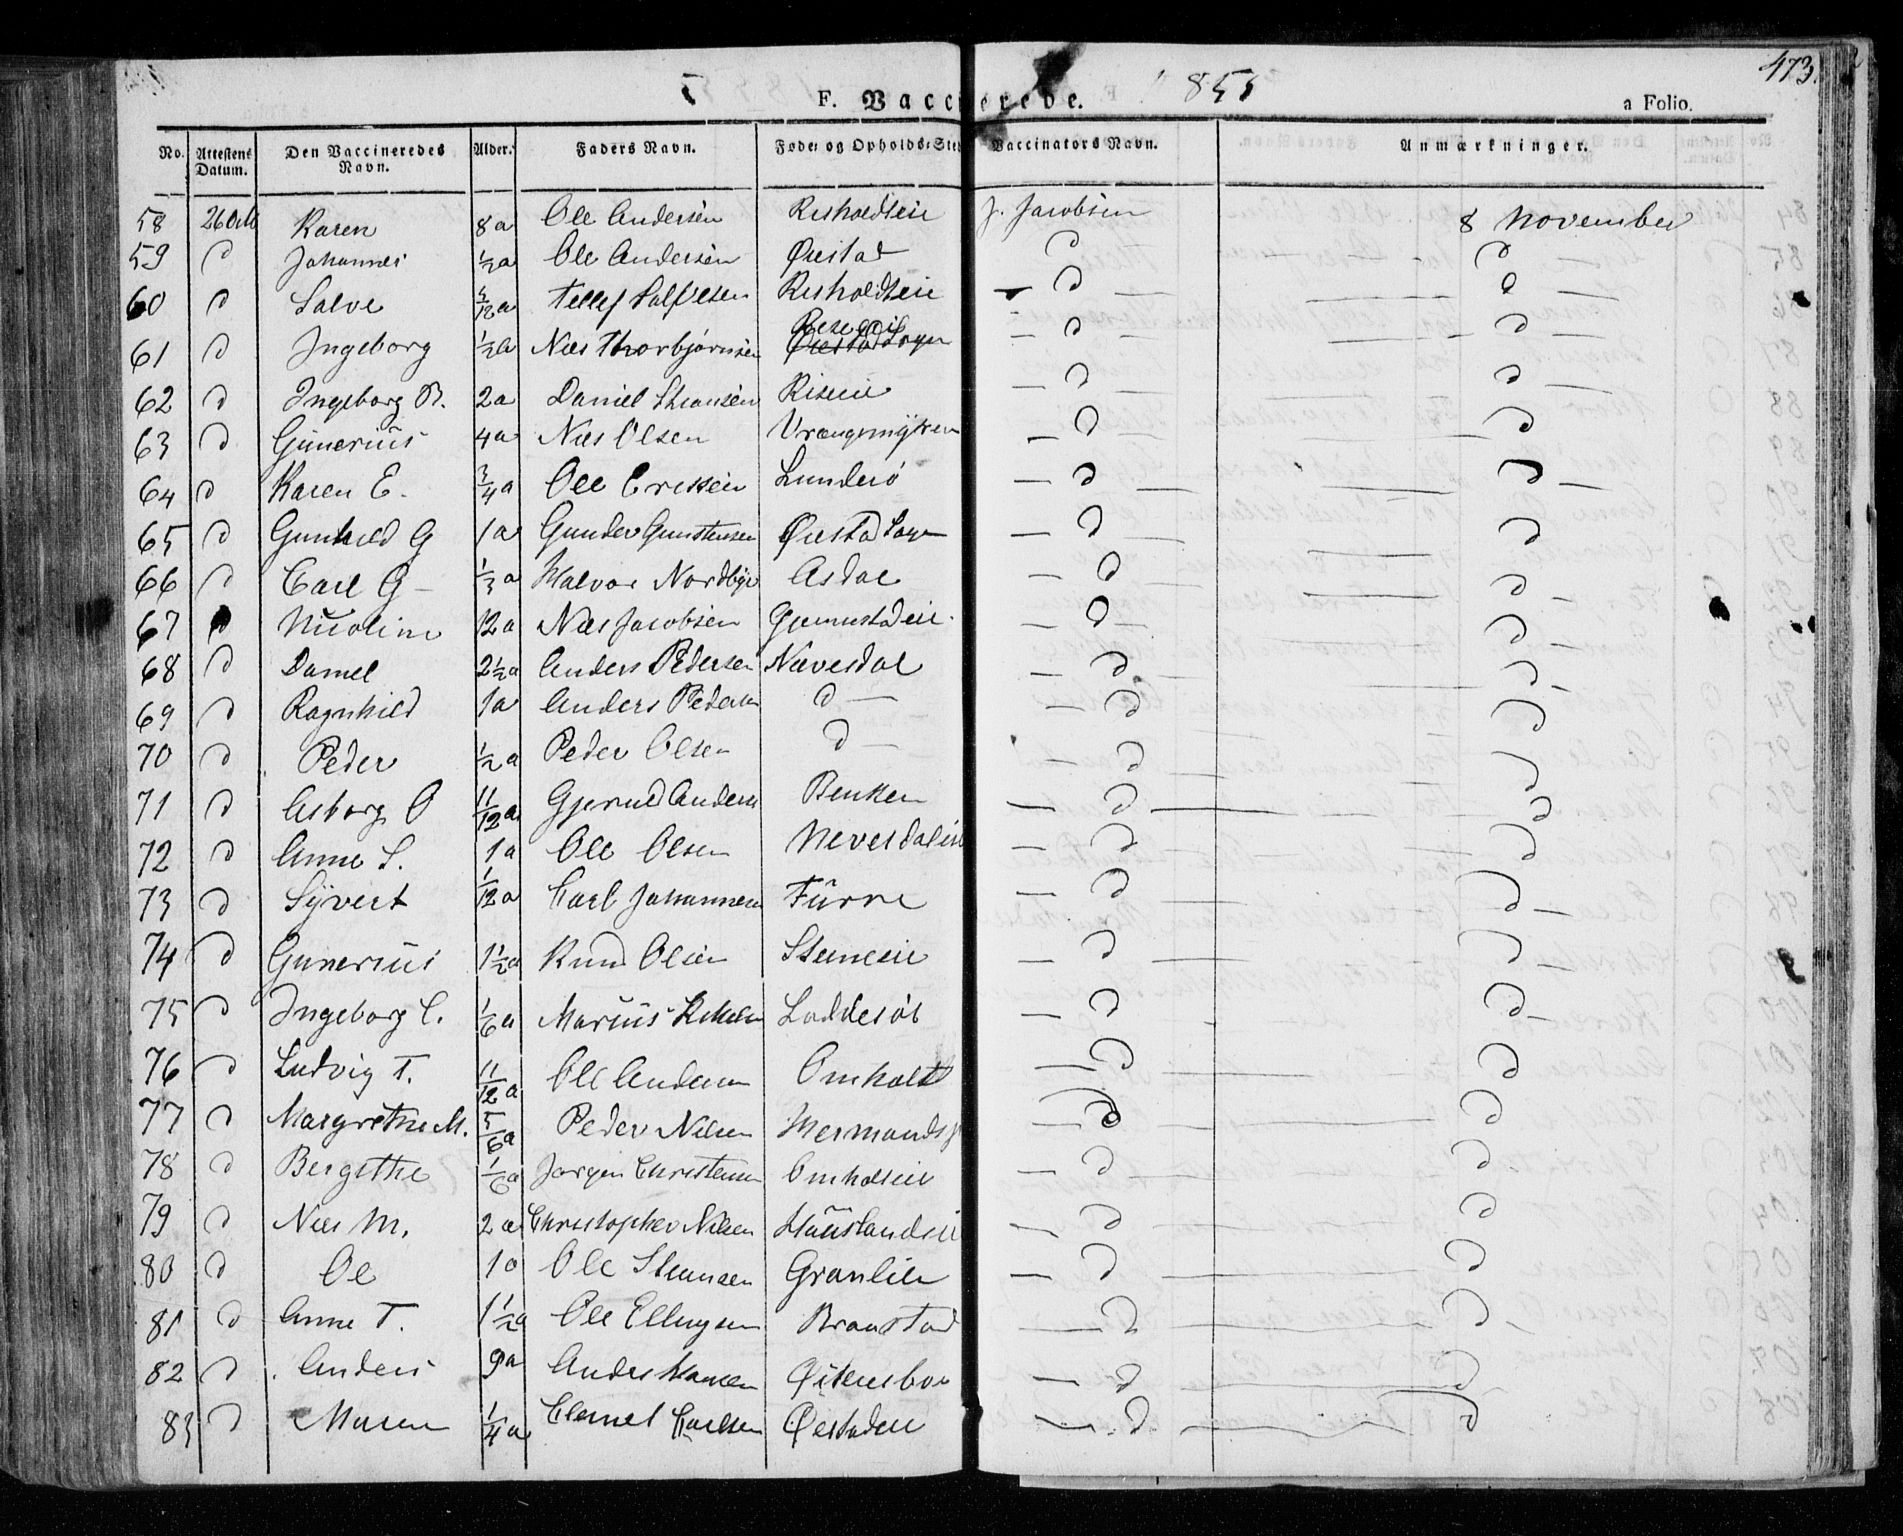 473.
F. Vaccinerede. 1851
a Folio.
No. Attestens Datum. Den Vaccineredes Navn. Alder. Faders Navn. Føde- og Opholds-Sted Vaccinators Navn. Anmærkninger.
58 26 Octb Karen 8a Ole Andersen Risholdteie J. Jacobsen 8 November
59 d Johannes ½a Ole Andersen Øiestad d d
60 d Salve 5/12a Tellef Salvesen Risholdteie — d — d —
61 d Ingeborg ½a Niels Thorbjørnsen Øiestad Sogn — d — d —
62 d Ingeborg B. 2a Daniel Steansen Riseeie — d d —
63 d Gunerius 4a Niels Olsen Vrængmyren — d d
64 d Karen E. ¾a Ole Ericksen Lundesø — d — d —
65 d Gunhild G 1a Gunder Gunstensen Øiestad Sogn — d d
66 d Carl G — ⅓a Halvor Nordbye Asdal — d d —
67 d Nicoline 12a Niels Jacobsen Gjennestadeie. — d — d —
68 d Daniel 2½a Anders Pedersen Nævesdal — d d —
69 d Ragnhild 1a Anders Pedersen d — — d d
70 d Peder ½a Peder Olsen d — — d d
71 d Asborg O 11/12a Gjerud Anders Benken — d — d
72 d Anne S. 1a Ole Olsen Nevesdaleie — d d
73 d Syvert 1/12a Carl Johannesen Furre — d d —
74 d Gunerius 1½a Knud Olsen Stemeie — d — d —
75 d Ingeborg C. 1/6a Marius Loddesøl — d d —
76 d Ludvig T. 11/12a Ole Andersen Omholt — d d
77 d Margrethe M. 5/6a Peder Nilsen — d d
78 d Bergithe 1/6a Jørgen Christensen Omholteie — d d
79 d Niels M. 2a Christopher Nilsen Haüslandseie — d d
80 d Ole 1a Ole Steansen Granlien — d d
81 d Anne T. 1½a Ole Ellingsen Braastad — d d —
82 d Anders 9a Anders Hansen — d d
83 d Maren ¼a Clemet Carlsen Øiestadeie — d d